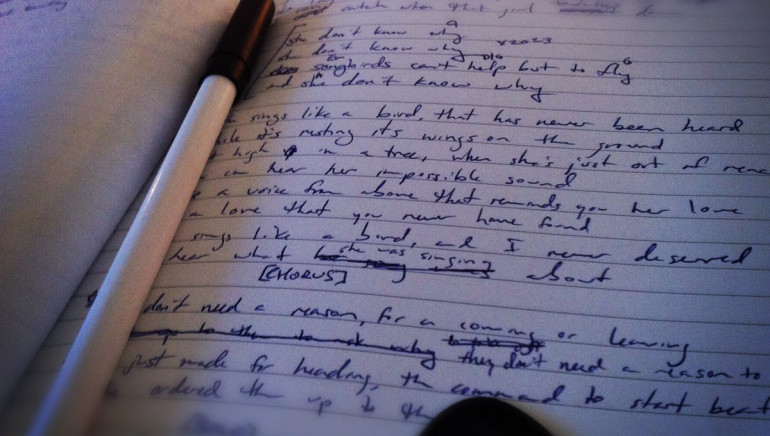 catch when that girl
G
she don't know why x2023
she don't know why
Em D/G G
songbirds can't help but to fly
and she don't know why
sings like a bird, that has never been heard
it's resting it's wings on the ground
high in a tree, when she's just out of
can hear her impossible sound
a voice from above that reminds you her love
a love that you never have found
sings like a bird, and I never deserved
hear what she was singing about
[CHORUS]
don't need a reason, for a coming or leaving
they don't need a reason to
just made for heading, the command to start beat
ordered them up to the